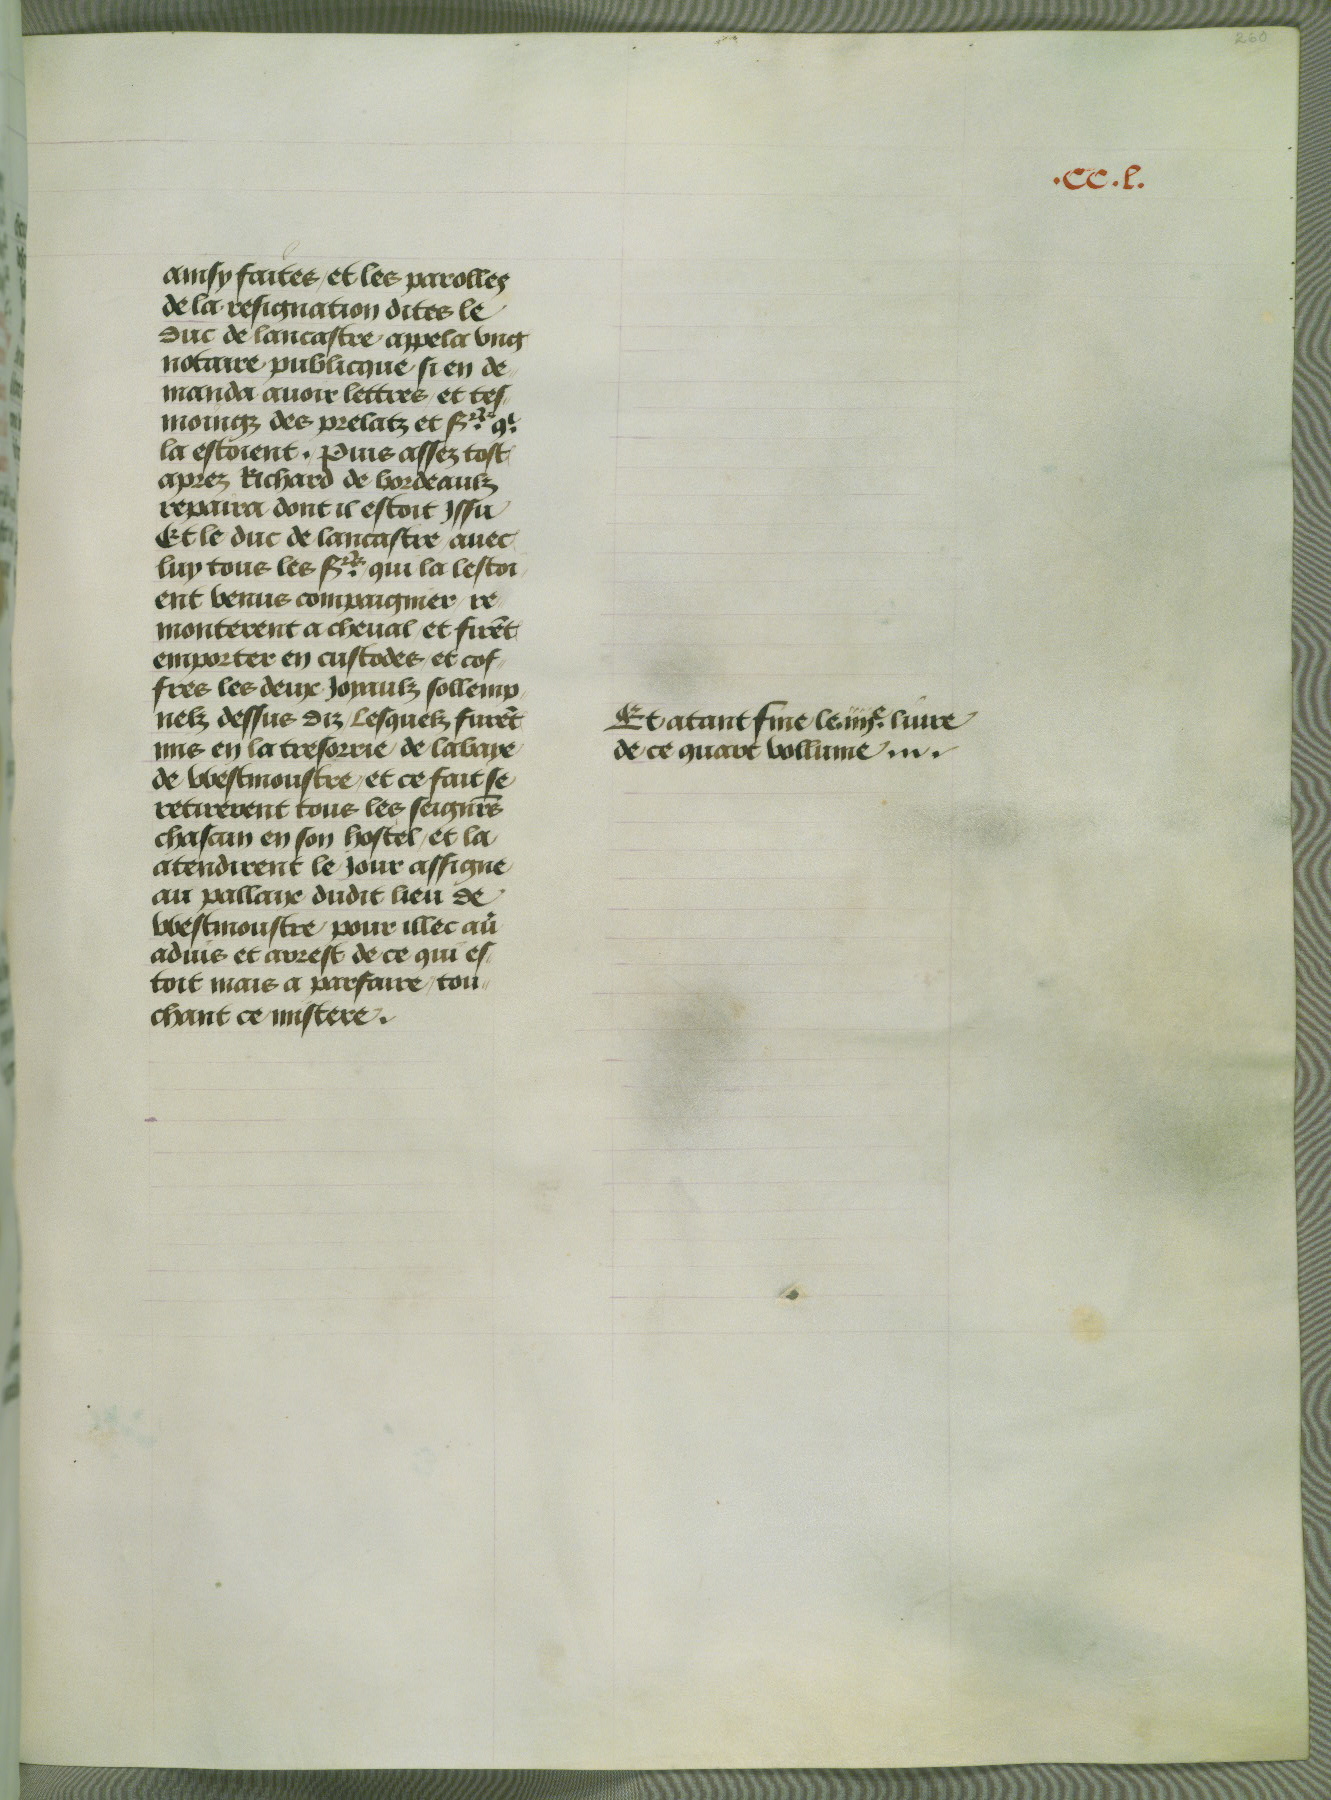 260
.CC.l.
ainsy faites / et les parolles
de la resignation dites le
Duc de lancastre appela vng
notaire publicque si en de¬
manda auoir lettres / et tes¬
moingz des prelatz et Srs qi
la estoient . Puis assez tost
aprez Richard de bordeaulz
repaira dont il estoit Jssu
Et le duc de lancastre auec
luy tous les Srs qui la lestoi¬
ent venus compaignier / re¬
monterent a cheual / et firēt
emporter en custodes / et cof¬
fres les deux Joyaulz sollemp¬
nelz dessus Diz / Lesquelz furēt
mis en la tresorrie de labaye
de Westmoustre / et ce fait se
retirerent tous les seignrs̄
chascun en son hostel / et la
atendirent le Jour assigne
au pallaix dudit lieu de
Westmoustre / pour illec au'
aduis et arrest de ce qui es¬
toit mais a parfaire / tou¬
chant ce mistere .
Et atant fine le .iiije. liure
de ce quart vollume